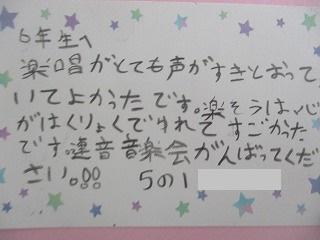 6年生へ
楽唱がとても声がすきとおって
いてよかったです。楽そうは、心
がはくりょくでゆれてすごかった
です。連音音楽会がんばってくだ
さい。!!!
5の1